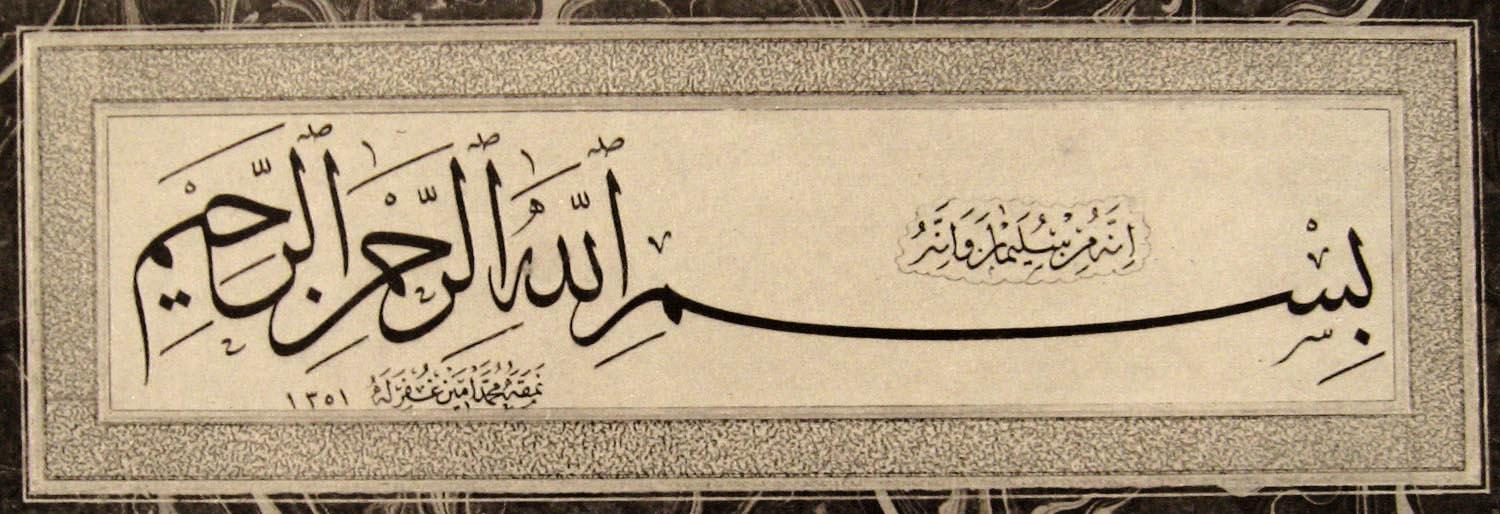 اِنَّهُ مِنْ سُلَيْمٰانَ وَاِنَّهُ
بِسْمِ اللّٰهِ الرَّحْمٰنِ الرَّحِيْمِ
نمقه محمد امين غفر له ١٣٥١